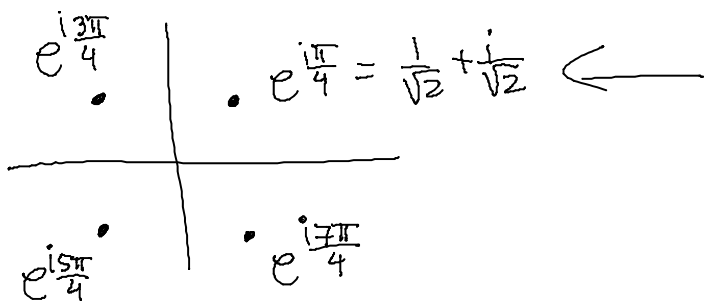 e^{i3π/4}
e^{iπ/4} = 1/√2 + i/√2
e^{i5π/4}
e^{i7π/4}